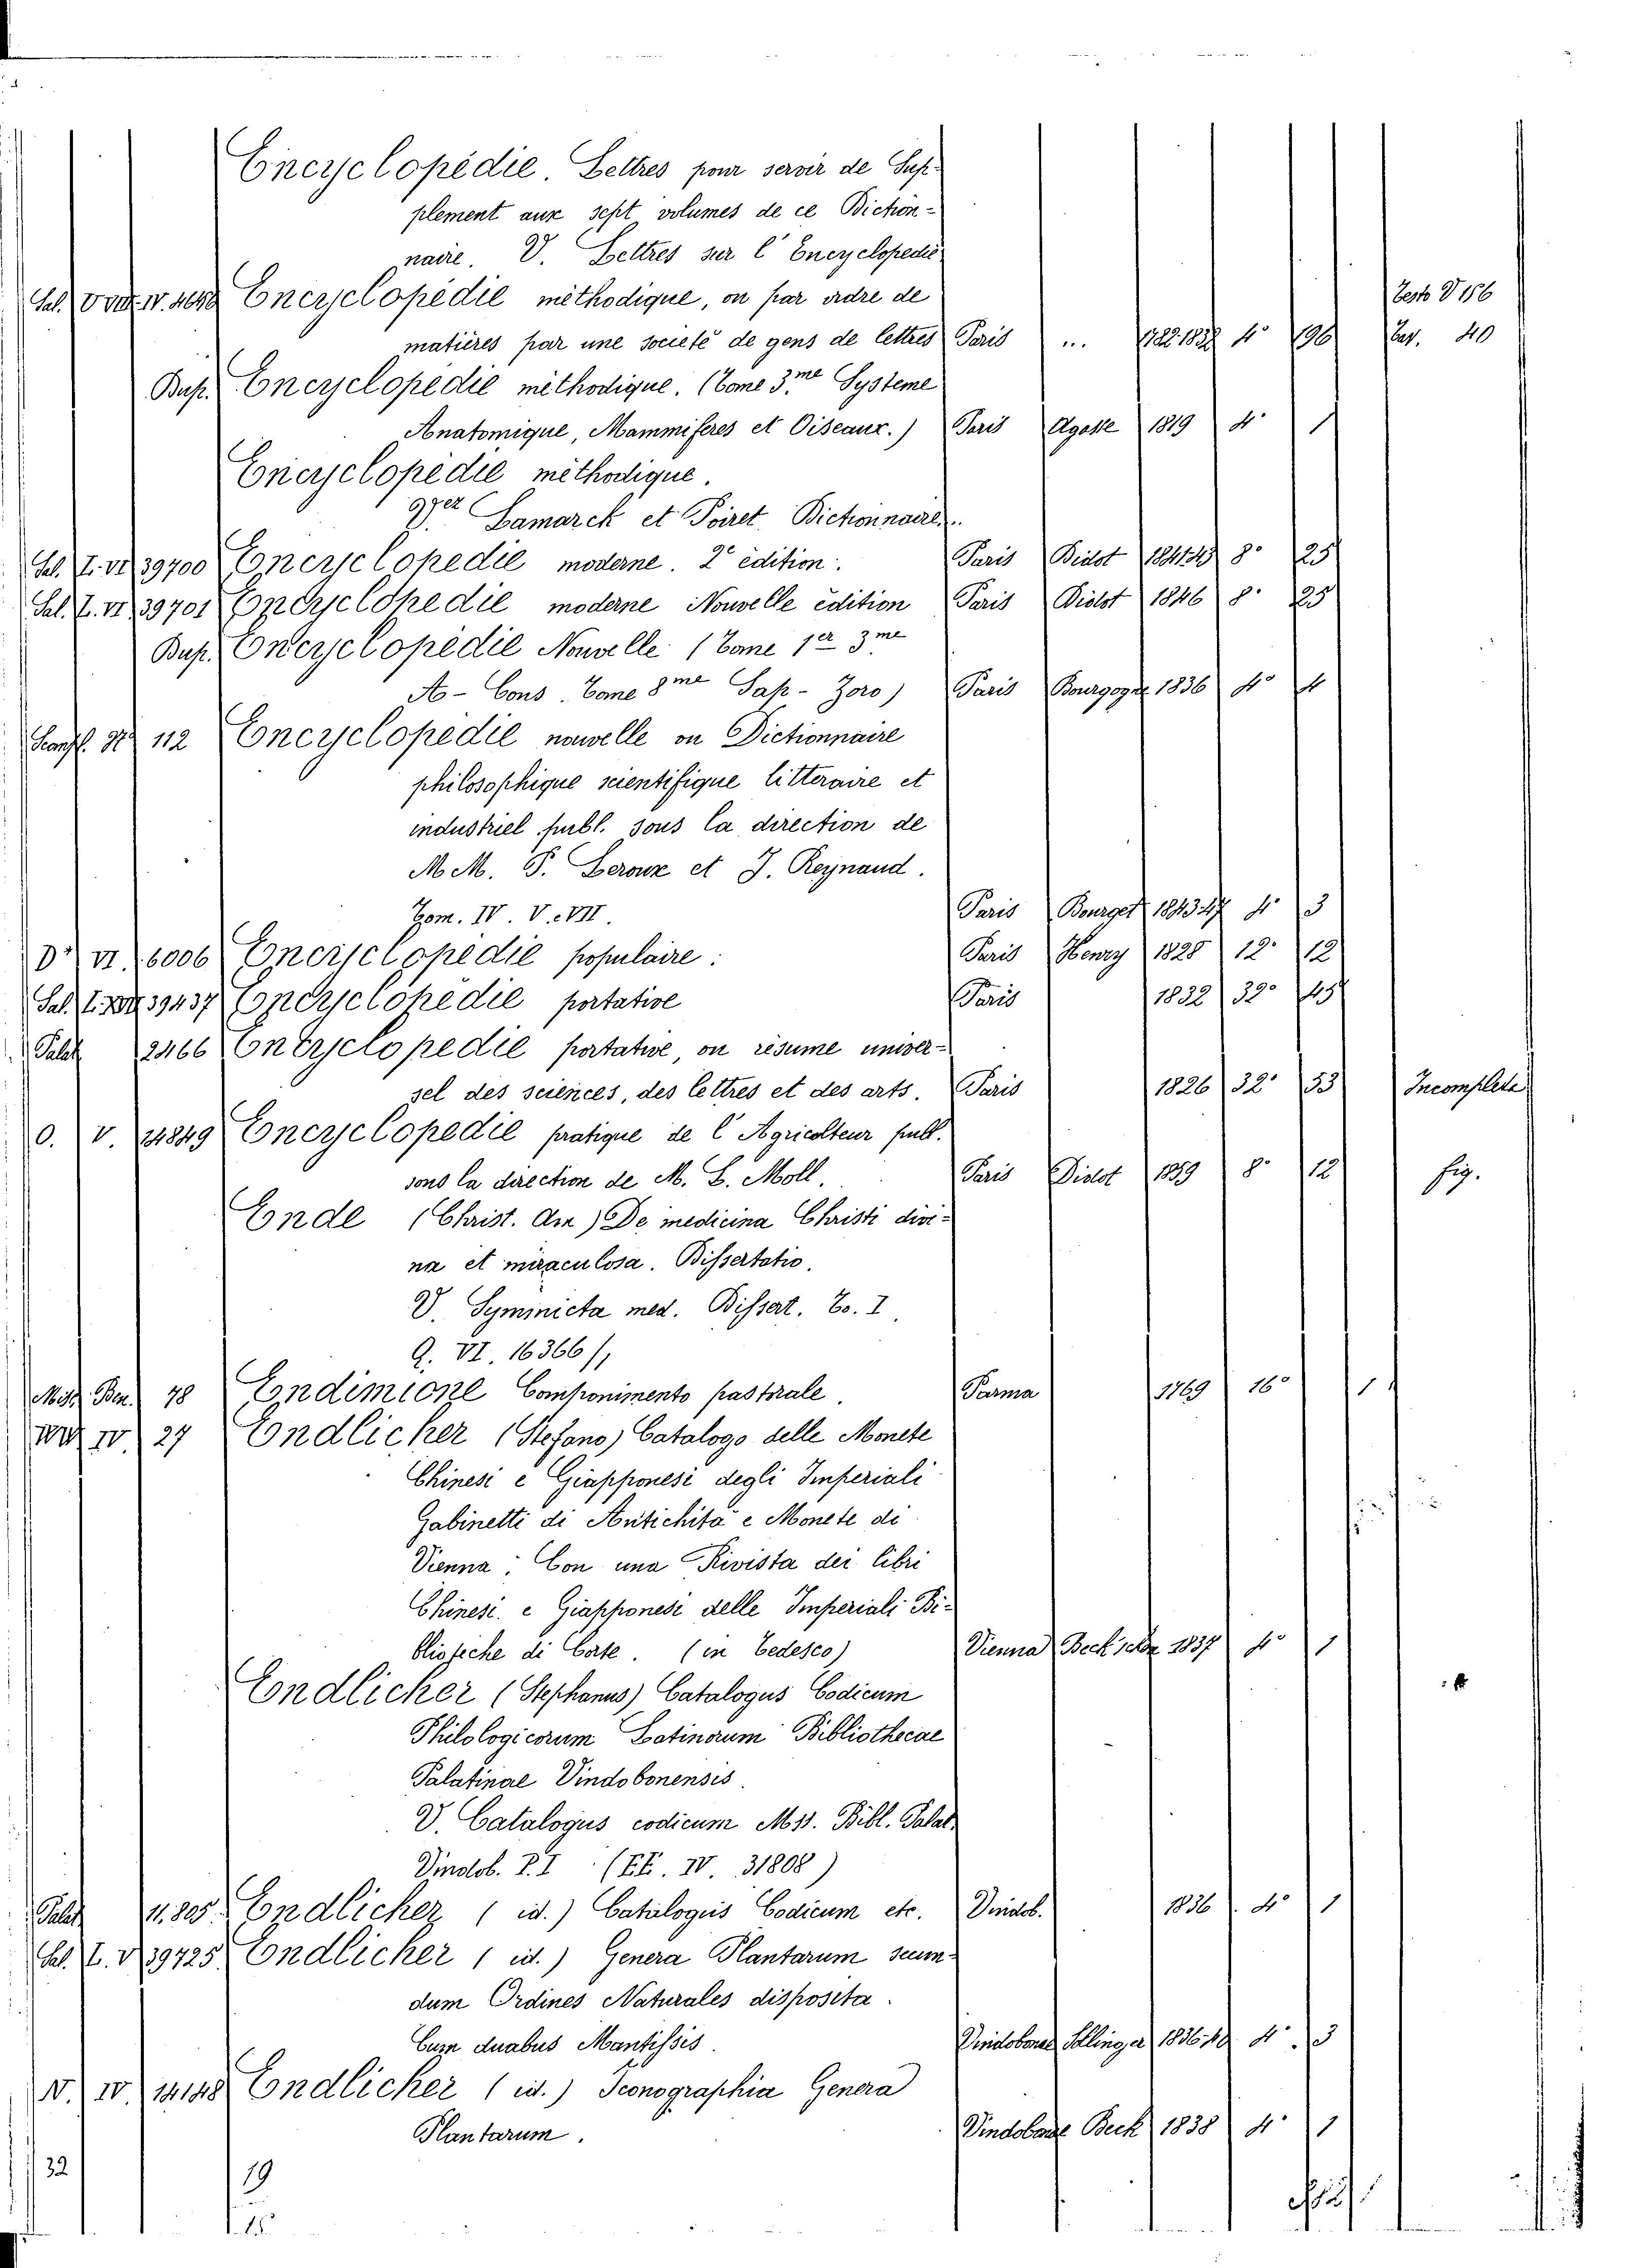 Encyclopédie. Lettres pour servir de Sup-
plement aux sept volumes de ce Diction-
naire. V. Lettres sur l'Encyclopedie
Encyclopédie méthodique, ou par ordre de Testo V 156
matières par une societé de gens de lettres Paris ... 1782 1832 4° 196 Tav. 40
Bup. Encyclopédie méthodique. (Tome 3.me Systeme
Anatomique, Mammiferes et Oiseaux.) Paris Agasse 1819 4° 1
Encyclopédie méthodique.
Lamarck et Poiret Dictionnaire.
Sal. L. VI 39700 Encyclopedie moderne. 2e édition. Paris Didot 8° 25
Sal. L. VI 39701 Encyclopedie moderne Nouvelle édition Paris Didot 1846 8° 25
Bup. Encyclopédie Nouvelle (Tome 1er 3me
A - Cons. Tome 8me Sap - Zoro) Paris Bourgogne 1836 4° 4
112 Encyclopedie nouvelle ou Dictionnaire
philosophique scientifique litteraire et
industriel publ. sous la direction de
M. M. P. Leroux et J. Reynaud.
Tom. IV. V. e VII. Paris Bourget 1843 47 4° 3
D' VI. 6006 Encyclopedie populaire. Paris Henry 1828 12° 12
39437 Encyclopedie portative Paris 1832 32° 45
Palat. 2466 Encyclopedie portative, ou résume univer-
sel des sciences, des lettres et des arts. Paris 1826 32° 53 Incompleta
O. V. 24849 Encyclopedie pratique de l'Agricolteur publ.
sous la direction de M. L. Moll. Paris Didot 1859 8° 12 fig.
Ende (Christ. Am) De medicina Christi divi-
na et miraculosa. Dissertatio.
V. Symmicta med. Dissert. To. I
Q. VI. 16366/,
Misc. Ben. 78 Endimione Componimento pastorale. Parma 1769 16° 1
IV. 27 Endlicher (Stefano) Catalogo delle Monete
Chinesi e Giapponesi degli Imperiali
Gabinetti di Antichità e Monete di
Vienna; Con una Rivista dei libri
Chinesi e Giapponesi delle Imperiali Bi-
blioteche di Corte. (in tedesco) Vienna Beck'sche 1837 4° 1
Endlicher (Stephanus) Catalogus Codicum
Philologicorum Latinorum Bibliothecae
Palatinae Vindobonensis.
V. Catalogus codicum Mss. Bibl. Palat.
Vindob. P. I (EE. IV 31808)
Palat. 11.805. Endlicher (id.) Catalogus Codicum etc. Vindob. 1836 4° 1
Sal. L. V 39725 Endlicher (id.) Genera Plantarum secun-
dum Ordines Naturales disposita.
Cum duabus Mantissis. Vindobonae 1836 40 4° 3
N. IV. 14148 Endlicher (id.) Iconographia Genera
Plantarum. Vindobonae Beck 1838 4° 1
32 19
15